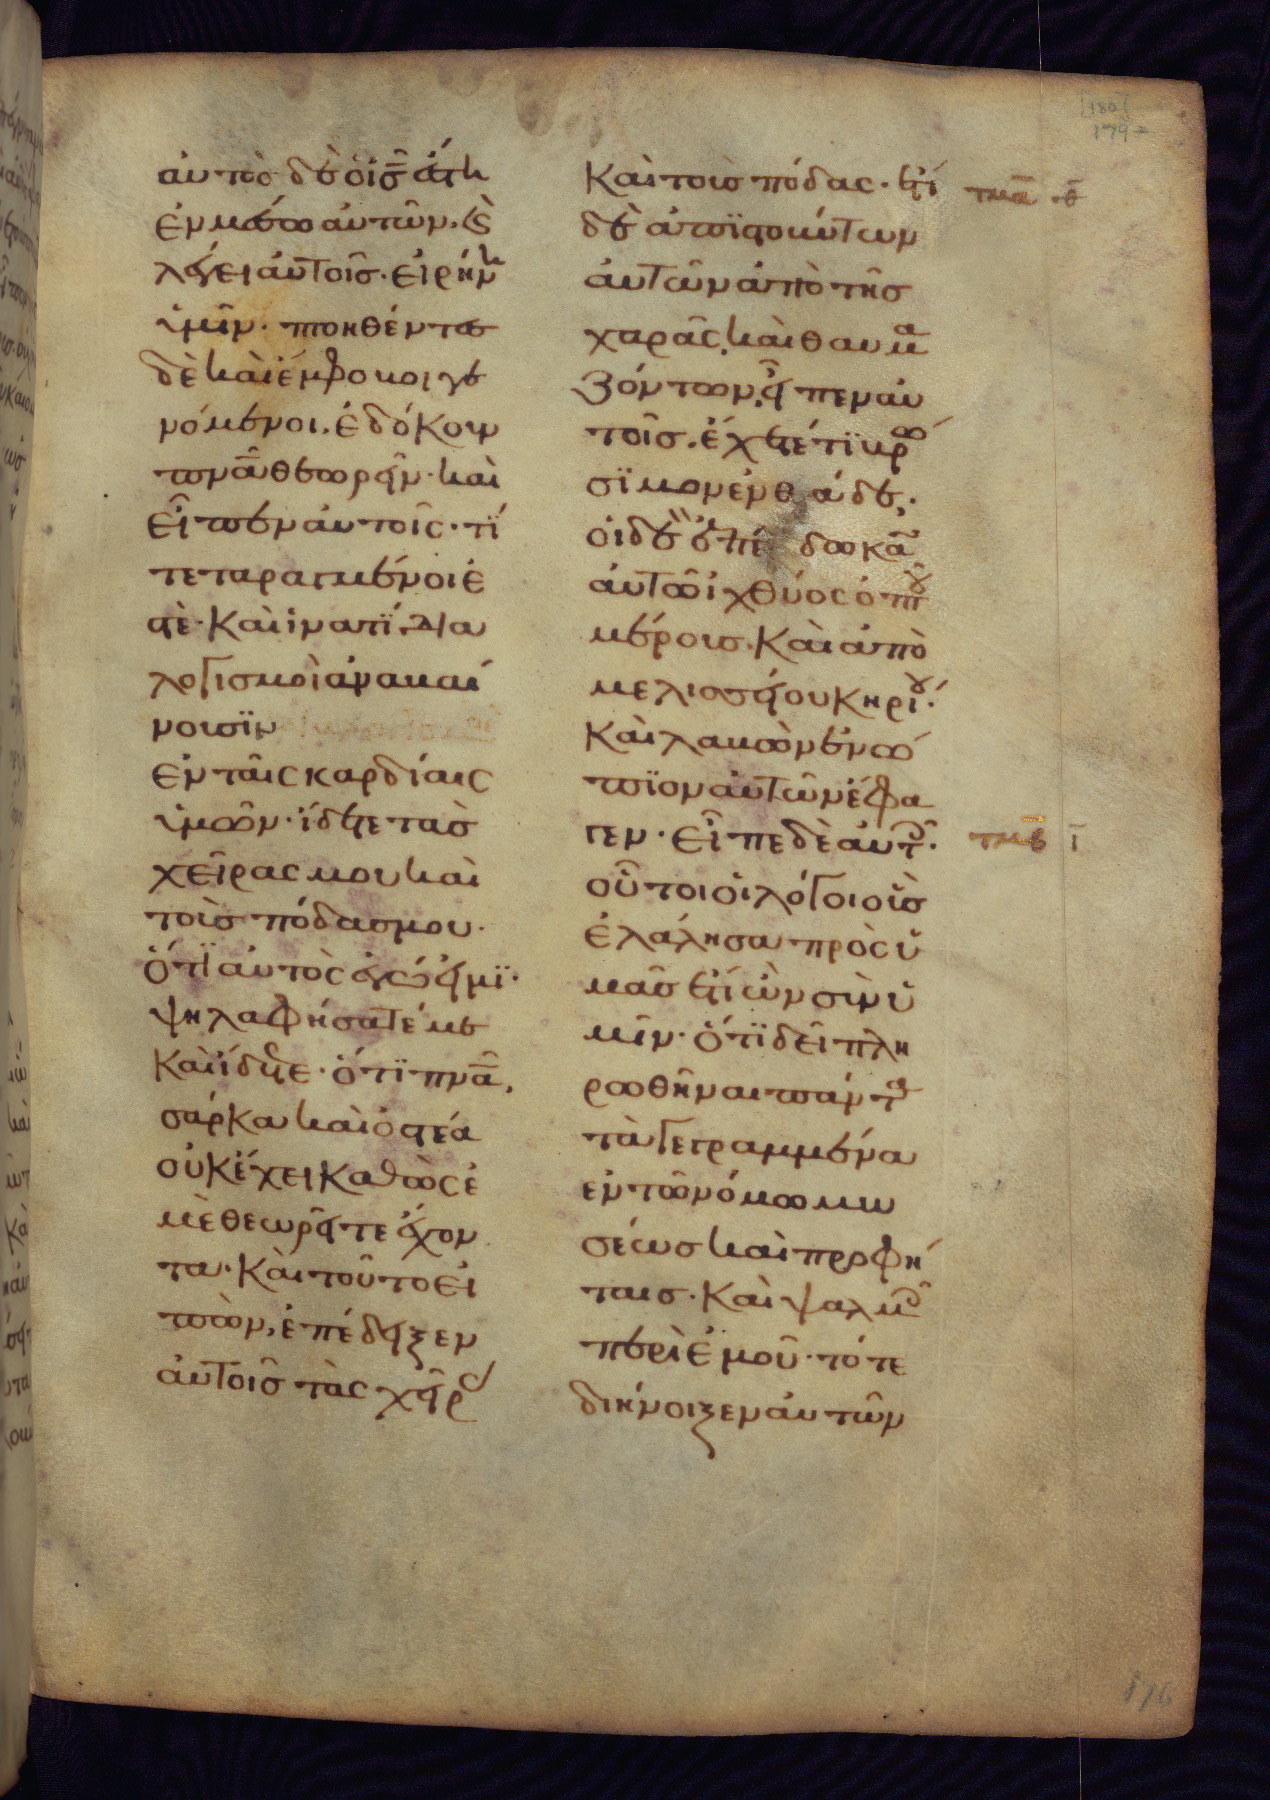 αυτὸ δὲ ὁ ἰ̅ς̅ ἔστη
ἐν μέσω αὐτῶν. καὶ
λέγει αὐτοῖς· εἰρήνη
ὑμῖν· πτοηθέντες
δὲ καὶ ἔμφοβοι γε
νόμενοι, ἐδόκουν
π̅ν̅α̅ θεωρεῖν· καὶ
εἶπεν αὐτοῖς· τί
τεταραγμένοι ἐ
στὲ· καὶ ἱνατί δια
λογισμοὶ ἀναβαί
νουσϊν
ἐν ταῖς καρδίαις
ὑμῶν· ἴδετε τὰς
χεῖρας μου καὶ
τοὺς πόδας μου·
ὅτϊ αὐτὸς ἐγώ εἰμϊ·
ψηλαφήσατέ με
καὶ ἴδετε· ὅτϊ π̅ν̅α̅,
σάρκα καὶ ὀστέα
οὐκ ἔχει καθὼς ἐ
μὲ θεωρεῖτε ἔχον
τα· καὶ τοῦτο εἰ
πὼν, ἐπέδειξεν
αὐτοῖς τὰς χεῖρας
καὶ τους πόδας· ἔτι
δὲ ἀπϊστούντων
αὐτῶν ἀπὸ τῆς
χαρᾶς, καὶ θαυμα
ζόντων, εἶπεν αὐ
τοῖς. ἔχετέ τϊ βρώ
σϊμον ἐνθάδε;
οἱ δὲ ἐπέδωκαν
αὐτῶ ἰχθύος ὀπτοῦ
μέρους· καὶ ἀπὸ
μελισσείου κηρίου·
καὶ λαβὼν ἐνώ
πϊον αὐτῶν ἔφα
γεν· εἶπε δὲ αὐτοῖς·
οὗτοι οἱ λόγοι οὓς
ἐλάλησα πρὸς ὑ
μᾶς ἔτι ὢν σὺν ὑ
μῖν· ὅτϊ δεῖ πλη
ρωθῆναι πάντα
τὰ γεγραμμένα
ἐν τῶ νόμω μω
σέως καὶ προφή
ταις· καὶ ψαλμοῖς
περὶ ἐμοῦ· τότε
διήνοιξεν αὐτῶν
τμα · θ
τμβ ι
[180]
179
176